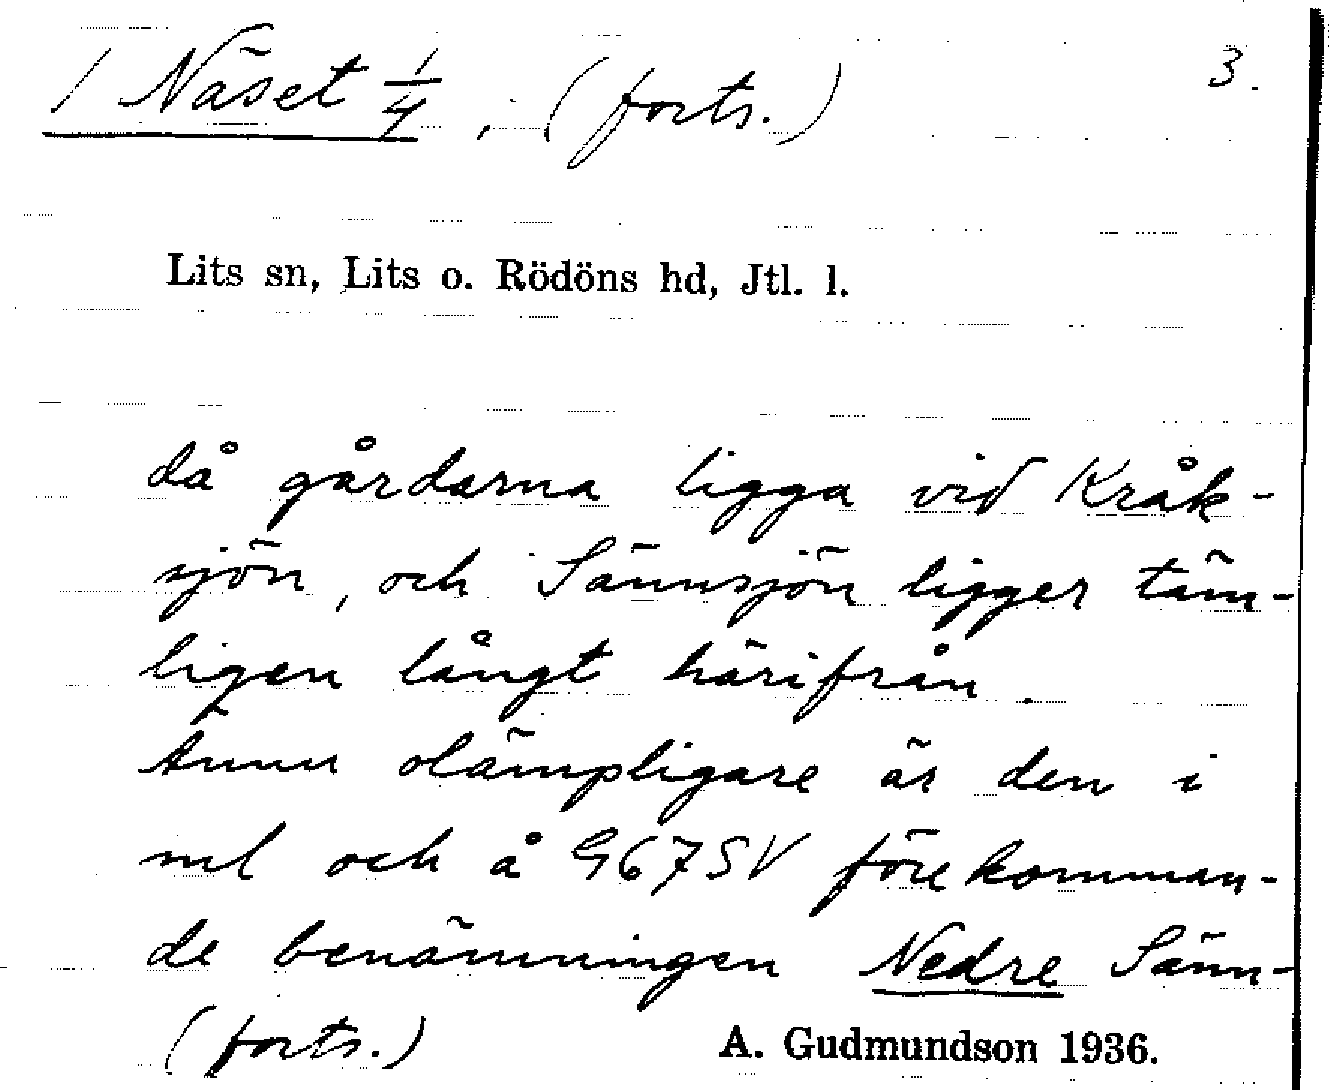 / Näset 1/4, (forts.) 3.
Lits sn, Lits o. Rödöns hd, Jtl. l.
då gårdarna ligga vid Kråk-
sjön, och Sännsjön ligger täm-
ligen långt härifrån.
Ännu olämpligare är den i
ml och å G67SV förekomman-
de benämningen Nedre Sänn-
(forts.)
A. Gudmundson 1936.